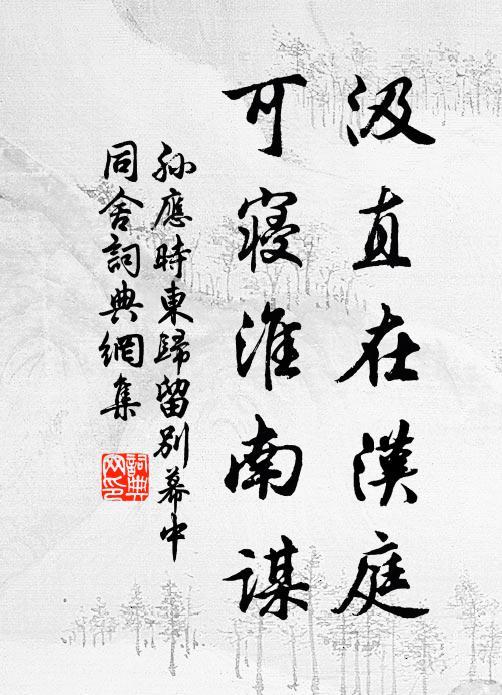 汲直在漢庭
可寢淮南謀
孫應時東歸留別幕中
同舍詞典網集
詞典网印